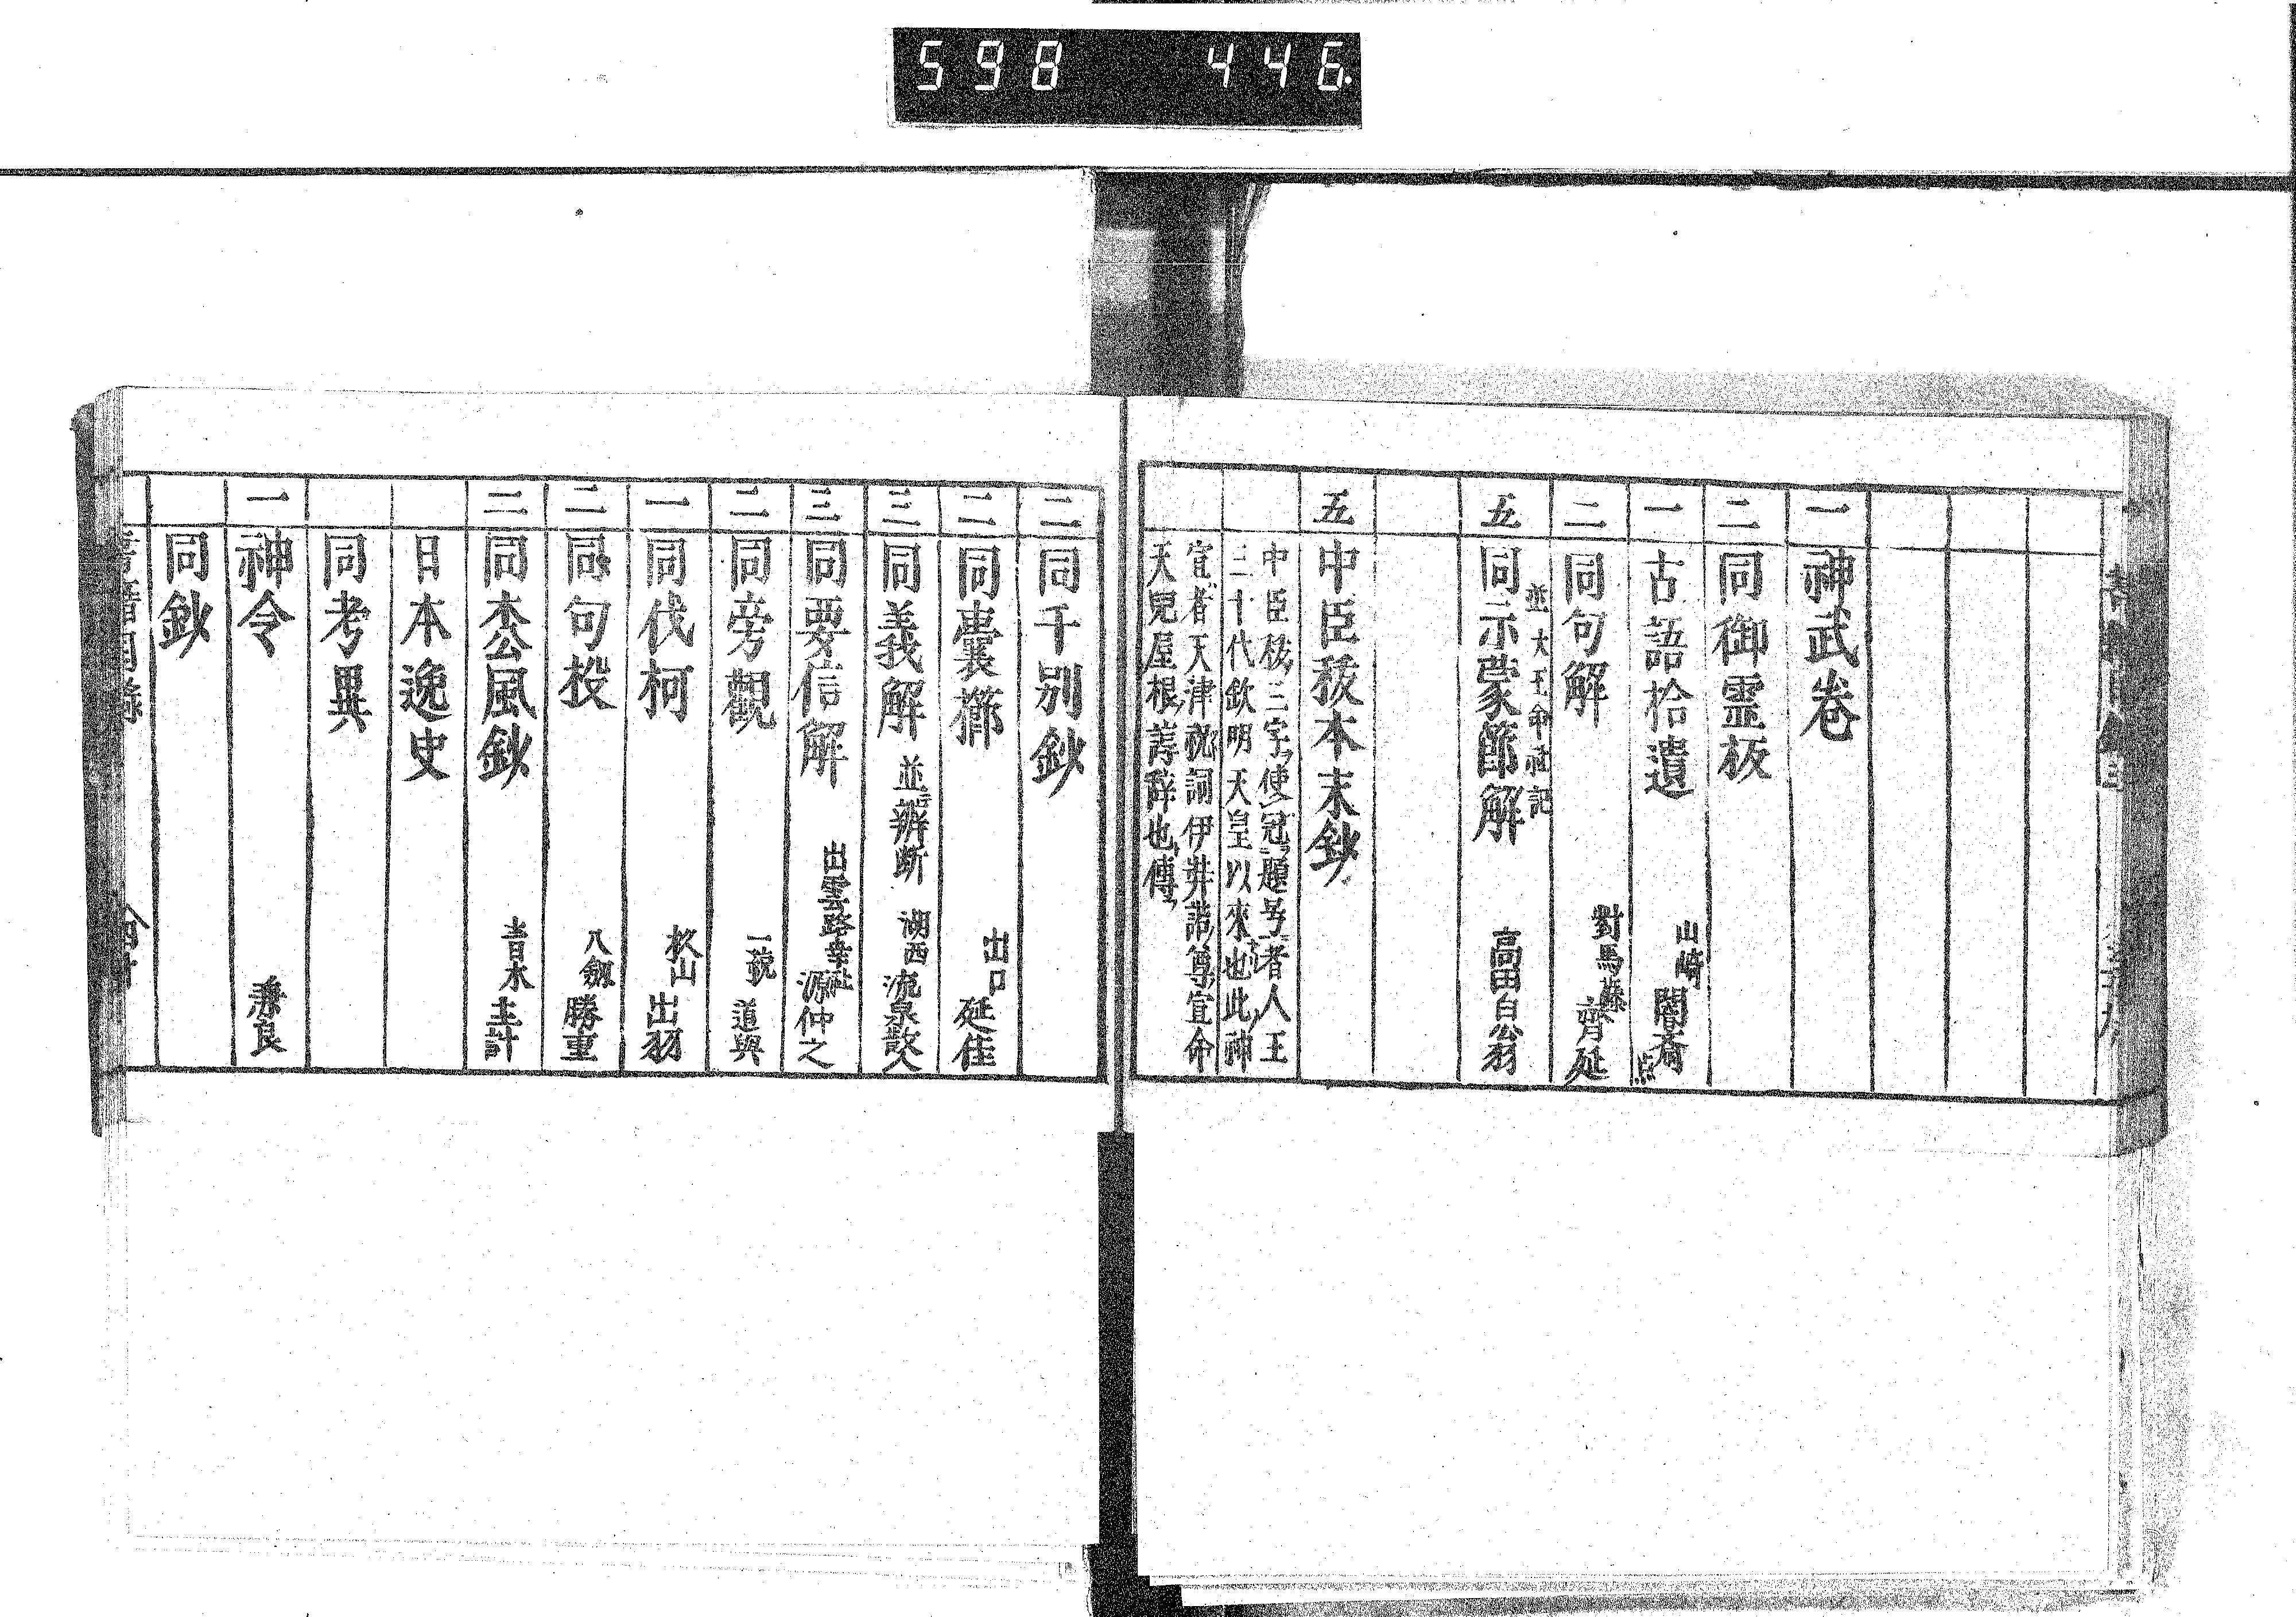 598 446
一 神武卷
二 同御霊板
一 古語拾遺 山崎闇斎点
二 同句解 對馬藤齊延
並大王命社記
五 同示蒙節解 高田白翁
五 中臣秡本末鈔
中臣秡三字使冠題号者人王
三十代欽明天皇以來也此神
宣者天津祝詞伊弉諾尊宣命
天児屋根辭也傳
二 同千別鈔
二 同嚢 出口延佳
三 同義解 並辨断 湖西流泉散人
三 同要信解 出雲路幸社源仲之
二 同旁觀 一貌道與
一 同伐柯 杦山出羽
二 同句投 八劔勝重
二 同松風鈔 青水主計
日本逸史
同考異
一 神令 兼良
同鈔